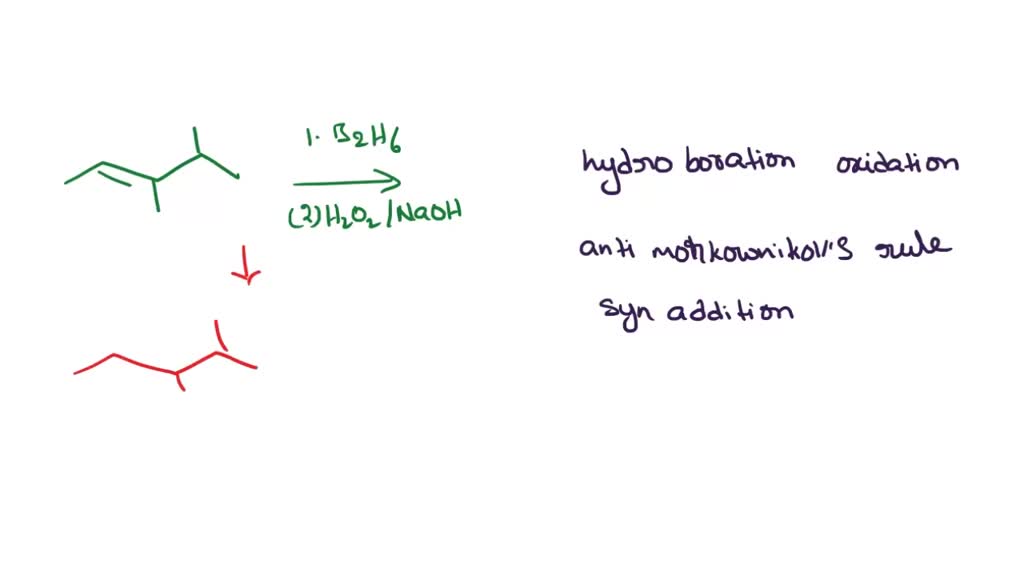 1. B2H6
(2) H2O2/NaOH
hydro boration oxidation
anti markownikoff's rule
syn addition